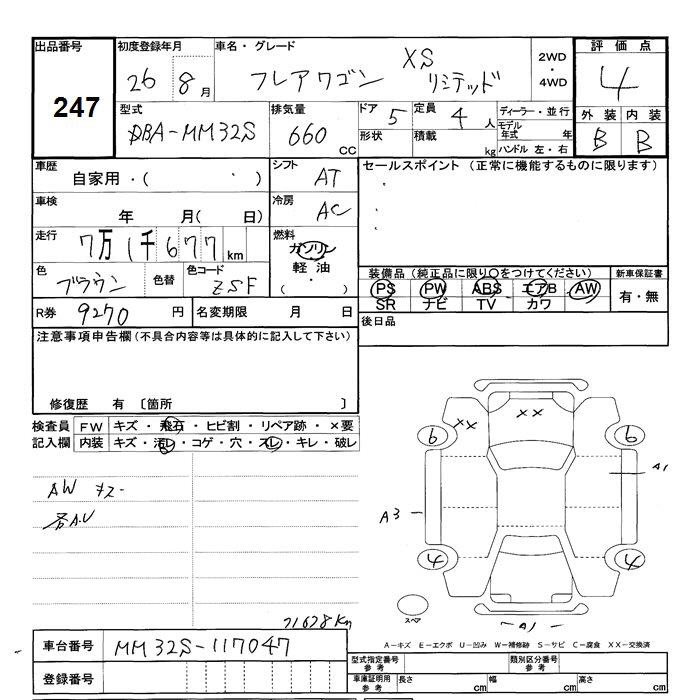 出品番号 初度登録年月 車名・グレード 評価点
247 26 8月 フレアワゴン XS リミテッド 2WD・4WD 4
型式 排気量 ドア 定員 ディーラー・並行 外装 内装
DBA-MM32S 660 CC 5 4人 モデル年式 年 B B
形状 積載 kg ハンドル 左・右
車歴 シフト セールスポイント (正常に機能するものに限ります)
自家用・( ・ ) AT
車検 冷房
年 月( 日) AC
走行 燃料
7万1千677km ガソリン
色 色替 色コード 軽油
ブラウン ZSF (・)
装備品(純正品に限り○をつけてください) 新車保証書
PS PW ABS エアB AW 有・無
SR ナビ TV カワ
R券 9270円 名変期限 月 日 後日品
注意事項申告欄(不具合内容等は具体的に記入して下さい)
修復歴 有 〔箇所 〕
検査員 FW キズ・飛石・ヒビ割・リペア跡・×要
記入欄 内装 キズ・汚レ・コゲ・穴・スレ・キレ・破レ
XX XX
6 6
A1
AW キズ-
A3
4 4
スペア
A1
71678Km
A-キズ E-エクボ U-凹み W-補修跡 S-サビ C-腐食 XX-交換済
車台番号 MM32S-117047
型式指定番号 参考 類別区分番号 参考
登録番号
車庫証明用 参考 長さ cm 幅 cm 高さ cm